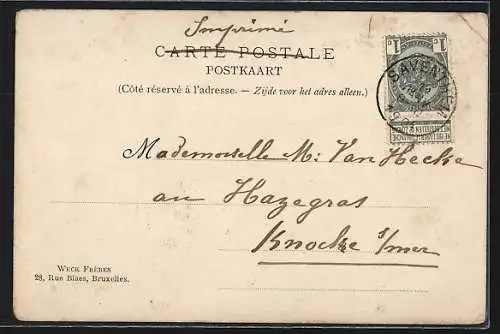 Imprimé
CARTE POSTALE
POSTKAART
(Côté réservé à l'adresse. — Zijde voor het adres alleen.)
1c 1c
SAVENTHEM
Mademoiselle M. Van Hecke
au Hazegras
Knocke s/mer
WECK FRÈRES
28, Rue Blaes, Bruxelles.